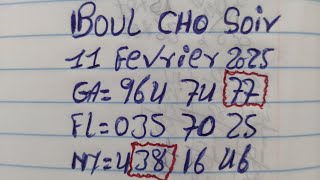 BOUL CHO Soir
11 Fevrier 2025
GA=964 74 77
FL=035 70 25
NY=438 16 46